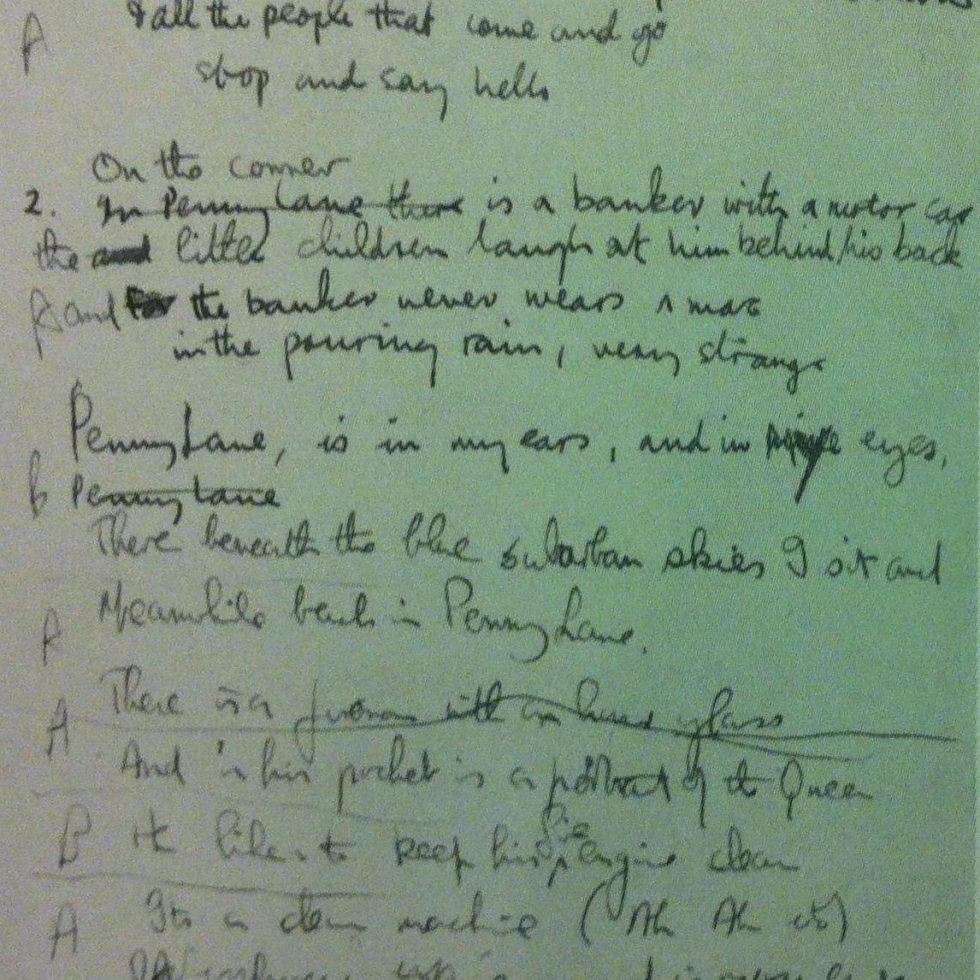 A & all the people that come and go
stop and say hello
On the corner
2. In Penny Lane there is a banker with a motor car
the and little children laugh at him behind his back
A and For the banker never wears a mac
in the pouring rain, very strange
Penny Lane, is in my ears, and in my eyes,
B Penny Lane
There beneath the blue suburban skies I sit and
A Meanwhile back in Penny Lane.
A There is a fireman with an hour glass
And in his pocket is a portrait of the Queen
B He likes to keep his fire engine clean
A Its a clean machine (Ah Ah etc)